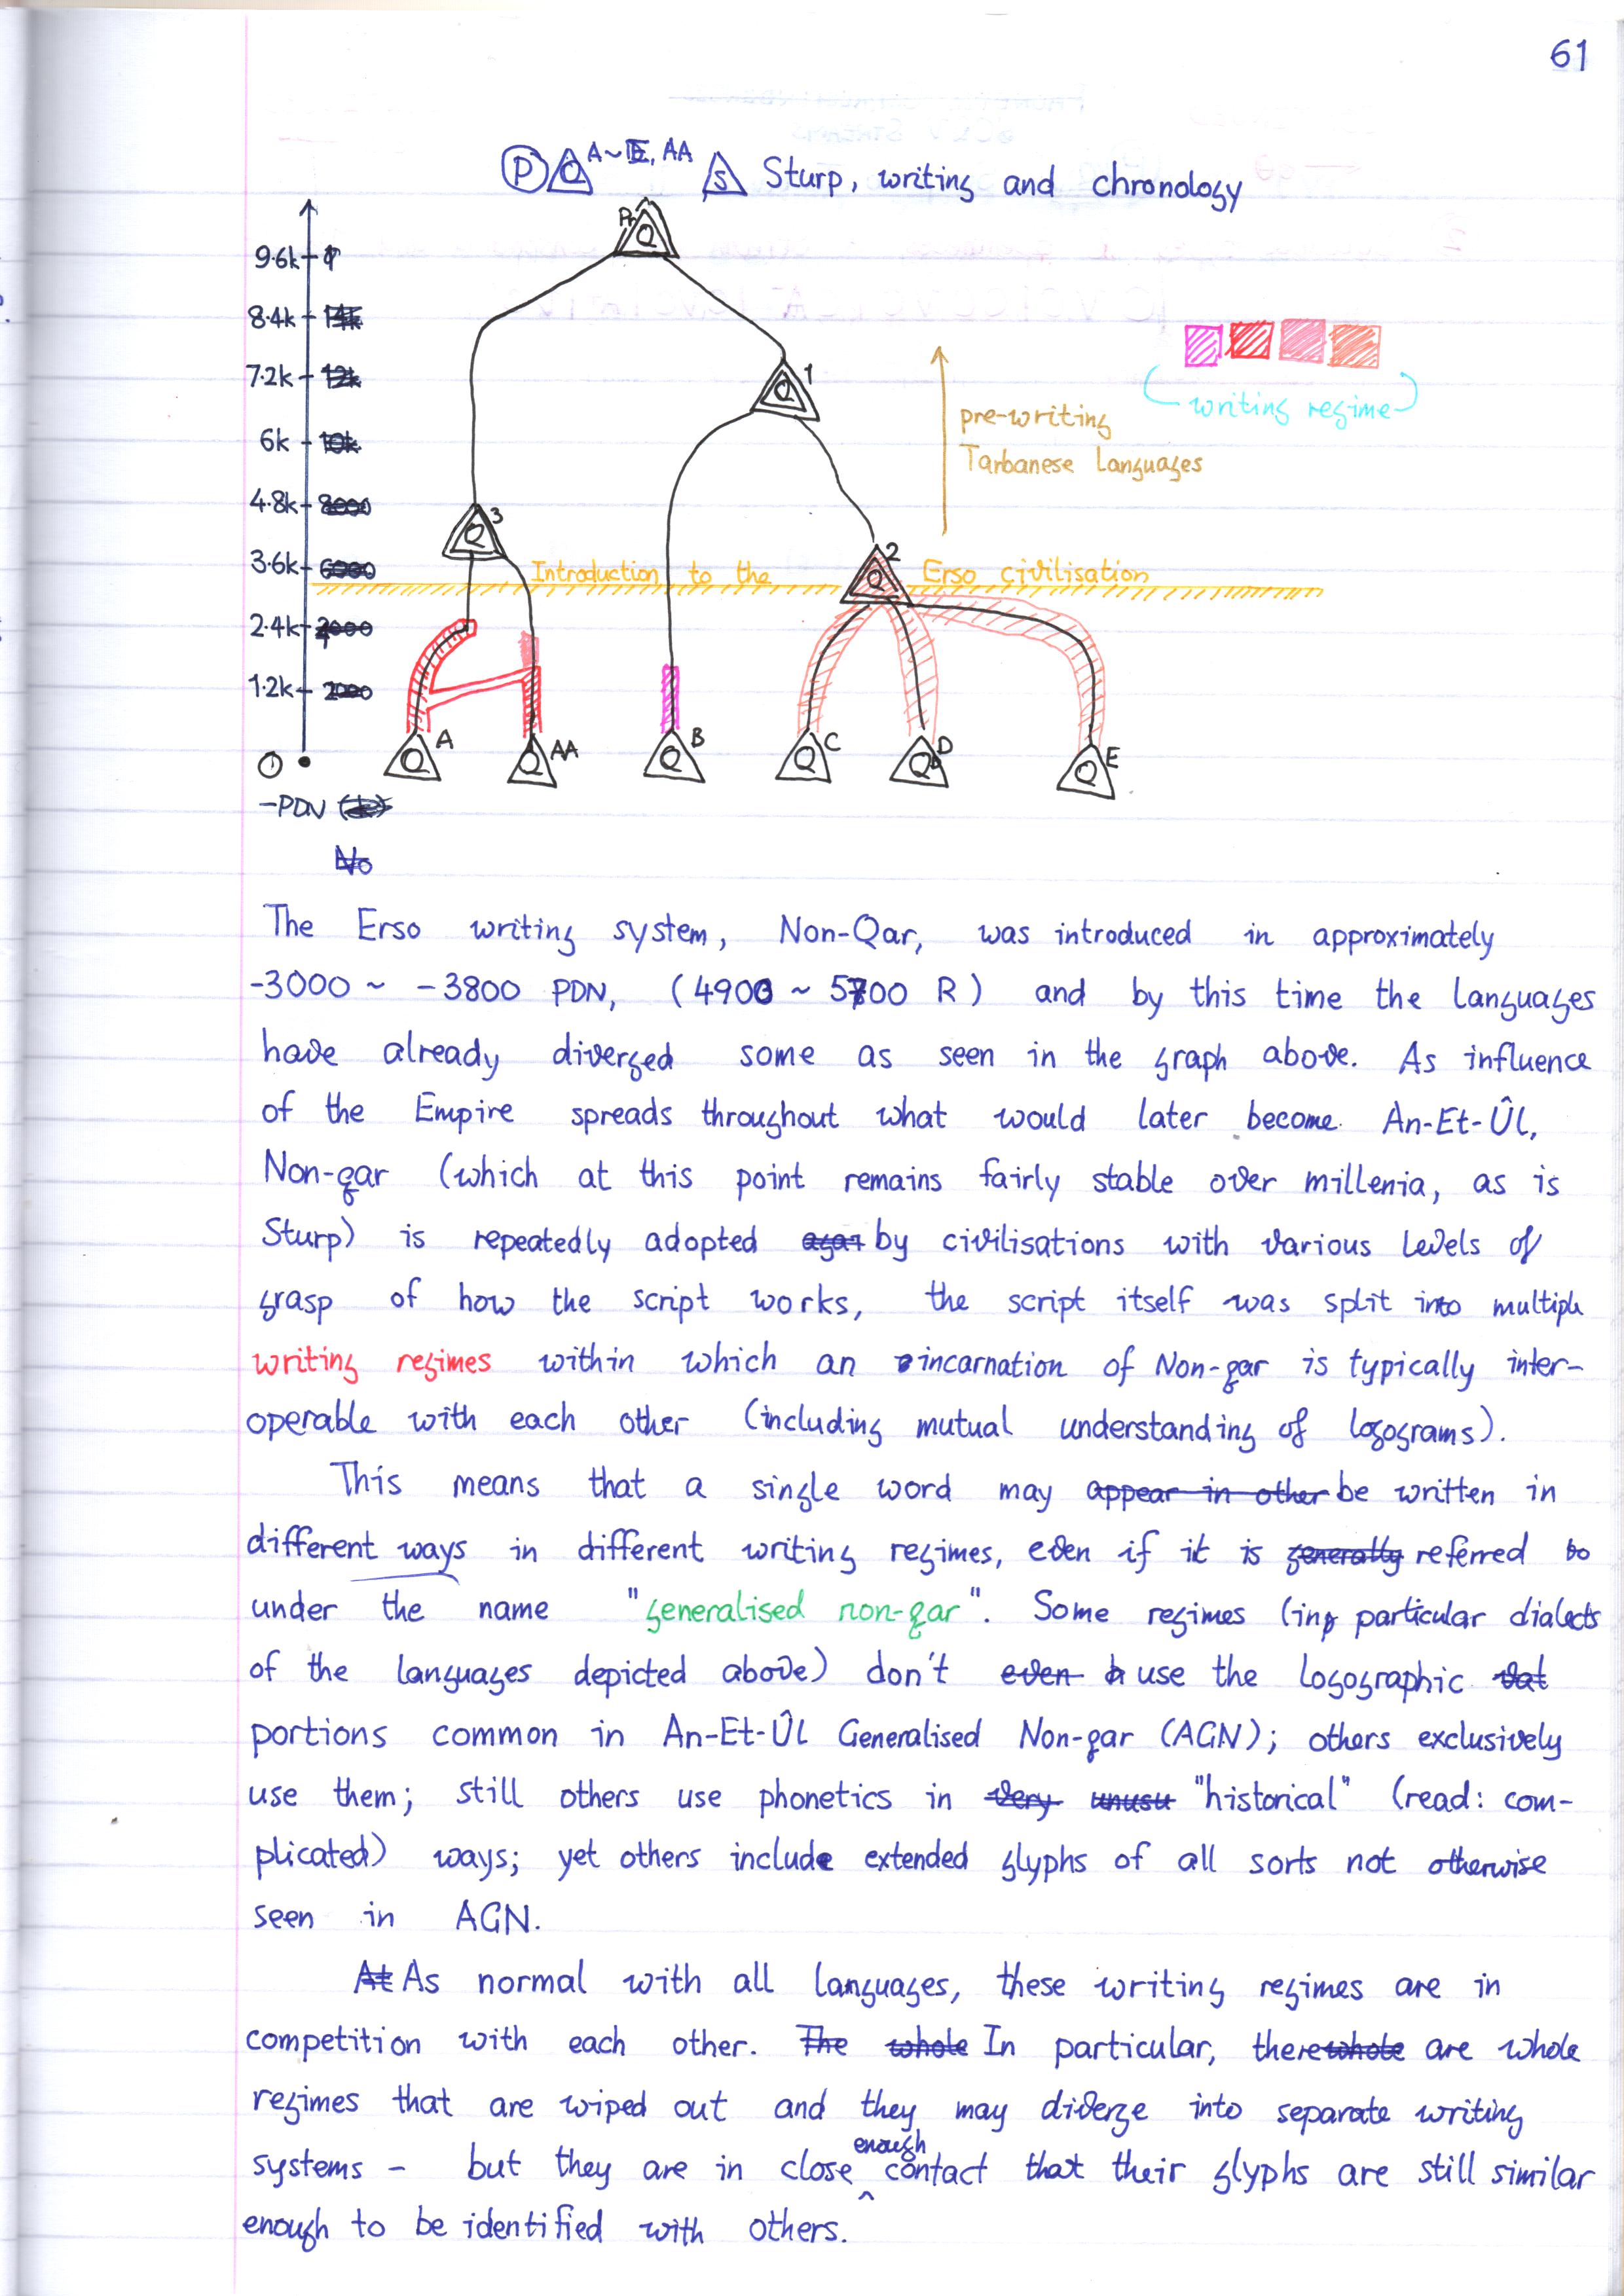 61
P Q A~E, AA S Sturp, writing and chronology
Pr Q
9.6k
8.4k 14k
7.2k 12k
6k 10k
4.8k 8000
3.6k 6000
2.4k 4000
1.2k 2000
0
-PDN
No
Q 1
Q 3
Q 2
pre-writing
Tarbanese Languages
writing regime
Introduction to the Erso civilisation
Q A
Q AA
Q B
Q C
Q D
Q E
The Erso writing system, Non-Qar, was introduced in approximately
-3000 ~ -3800 PDN, (4900 ~ 5700 R) and by this time the languages
have already diverged some as seen in the graph above. As influence
of the Empire spreads throughout what would later become An-Et-Ûl,
Non-qar (which at this point remains fairly stable over millenia, as is
Sturp) is repeatedly adopted by civilisations with various levels of
grasp of how the script works, the script itself was split into multiple
writing regimes within which an incarnation of Non-qar is typically inter-
operable with each other (including mutual understanding of logograms).
This means that a single word may appear in other be written in
different ways in different writing regimes, even if it is generally referred to
under the name "generalised non-qar". Some regimes (ing particular dialects
of the languages depicted above) don't even use the logographic
portions common in An-Et-Ûl Generalised Non-qar (AGN); others exclusively
use them; still others use phonetics in very unusu "historical" (read: com-
plicated) ways; yet others include extended glyphs of all sorts not otherwise
seen in AGN.
At As normal with all languages, these writing regimes are in
competition with each other. The whole In particular, there whole are whole
regimes that are wiped out and they may diverge into separate writing
systems - but they are in close enough contact that their glyphs are still similar
enough to be identified with others.